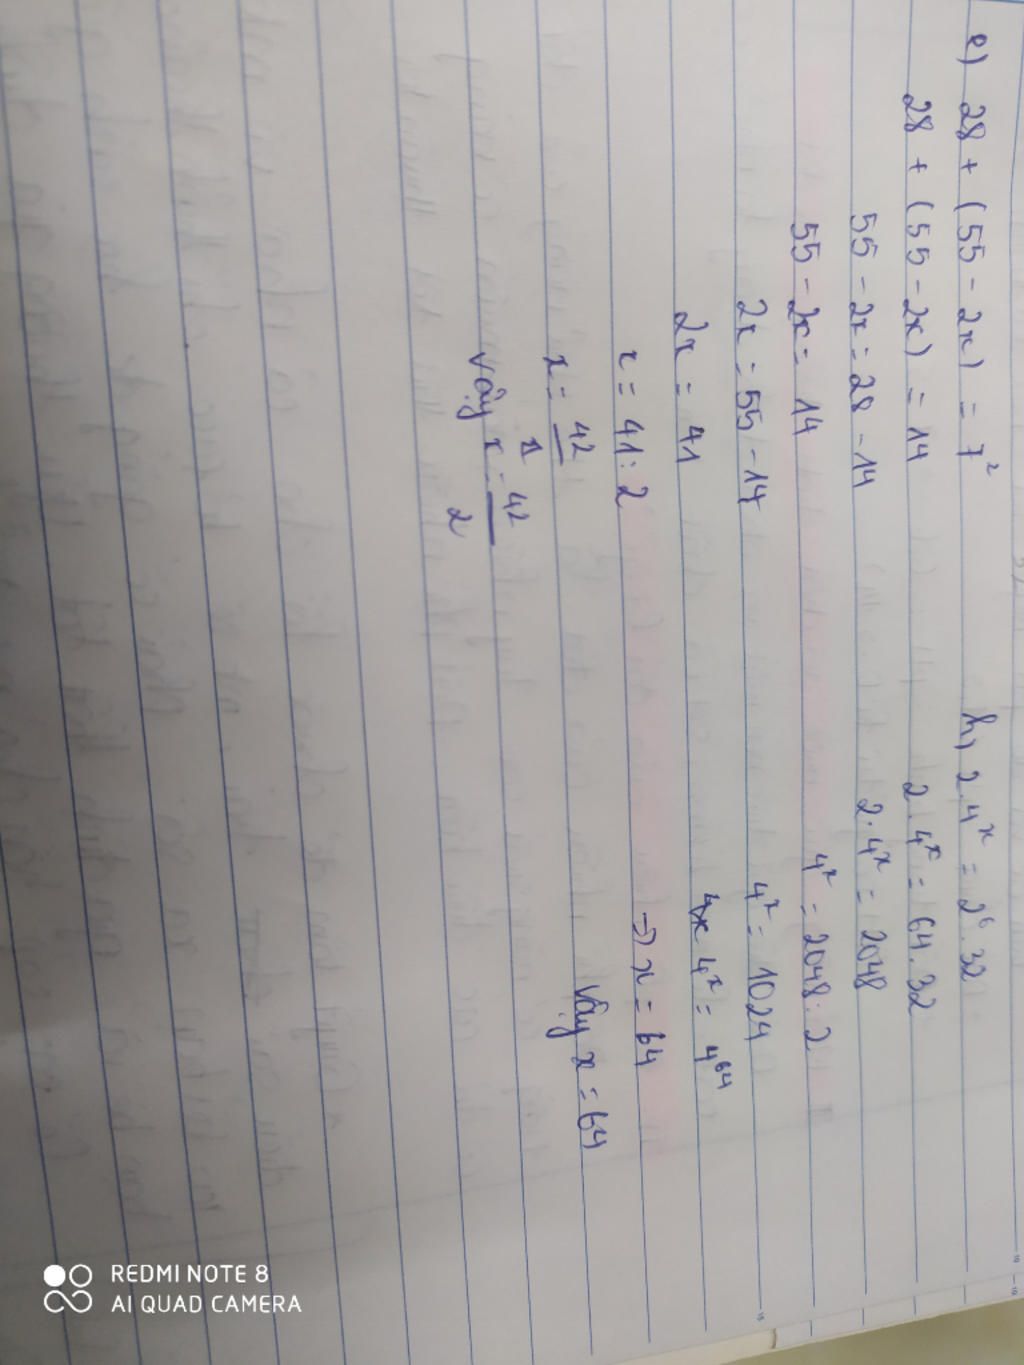 e) 28 + (55 - 2x) = 7²
28 + (55 - 2x) = 14
55 - 2x = 28 - 14
55 - 2x = 14
2x = 55 - 14
2x = 41
x = 41 : 2
x = 42
2
Vậy x = 42
2
h, 2.4ˣ = 2⁶.32
2.4ˣ = 64.32
2.4ˣ = 2048
4ˣ = 2048 : 2
4ˣ = 1024
4ˣ = 4⁶⁴
=> x = 64
Vậy x = 64
REDMI NOTE 8
AI QUAD CAMERA